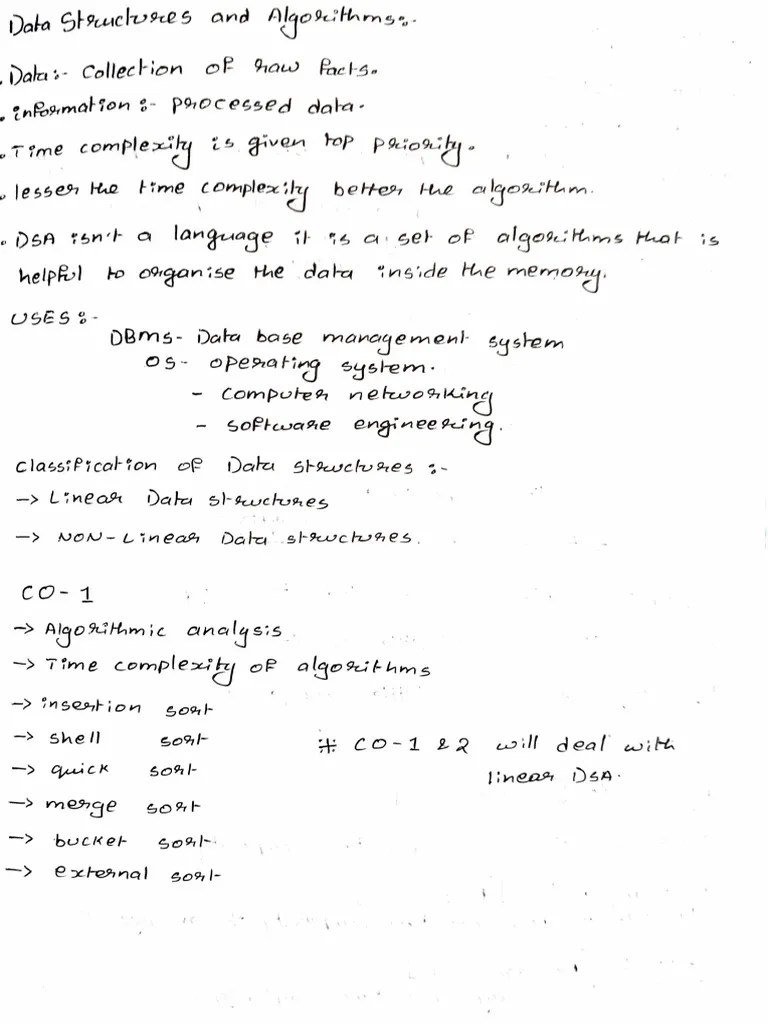 Data Structures and Algorithms:-
. Data:- Collection of raw facts.
. information:- processed data.
. Time complexity is given top priority.
. lesser the time complexity better the algorithm.
. DSA isn't a language it is a set of algorithms that is
helpful to organise the data inside the memory.
USES:-
DBMS- Data base management system
OS- operating system.
- computer networking
- software engineering.
classification of Data structures:-
-> Linear Data structures
-> NON-Linear Data structures.
CO-1
-> Algorithmic analysis
-> Time complexity of algorithms
-> insertion sort
-> shell sort
* CO-1 & 2 will deal with
-> quick sort
linear DSA.
-> merge sort
-> bucket sort
-> external sort